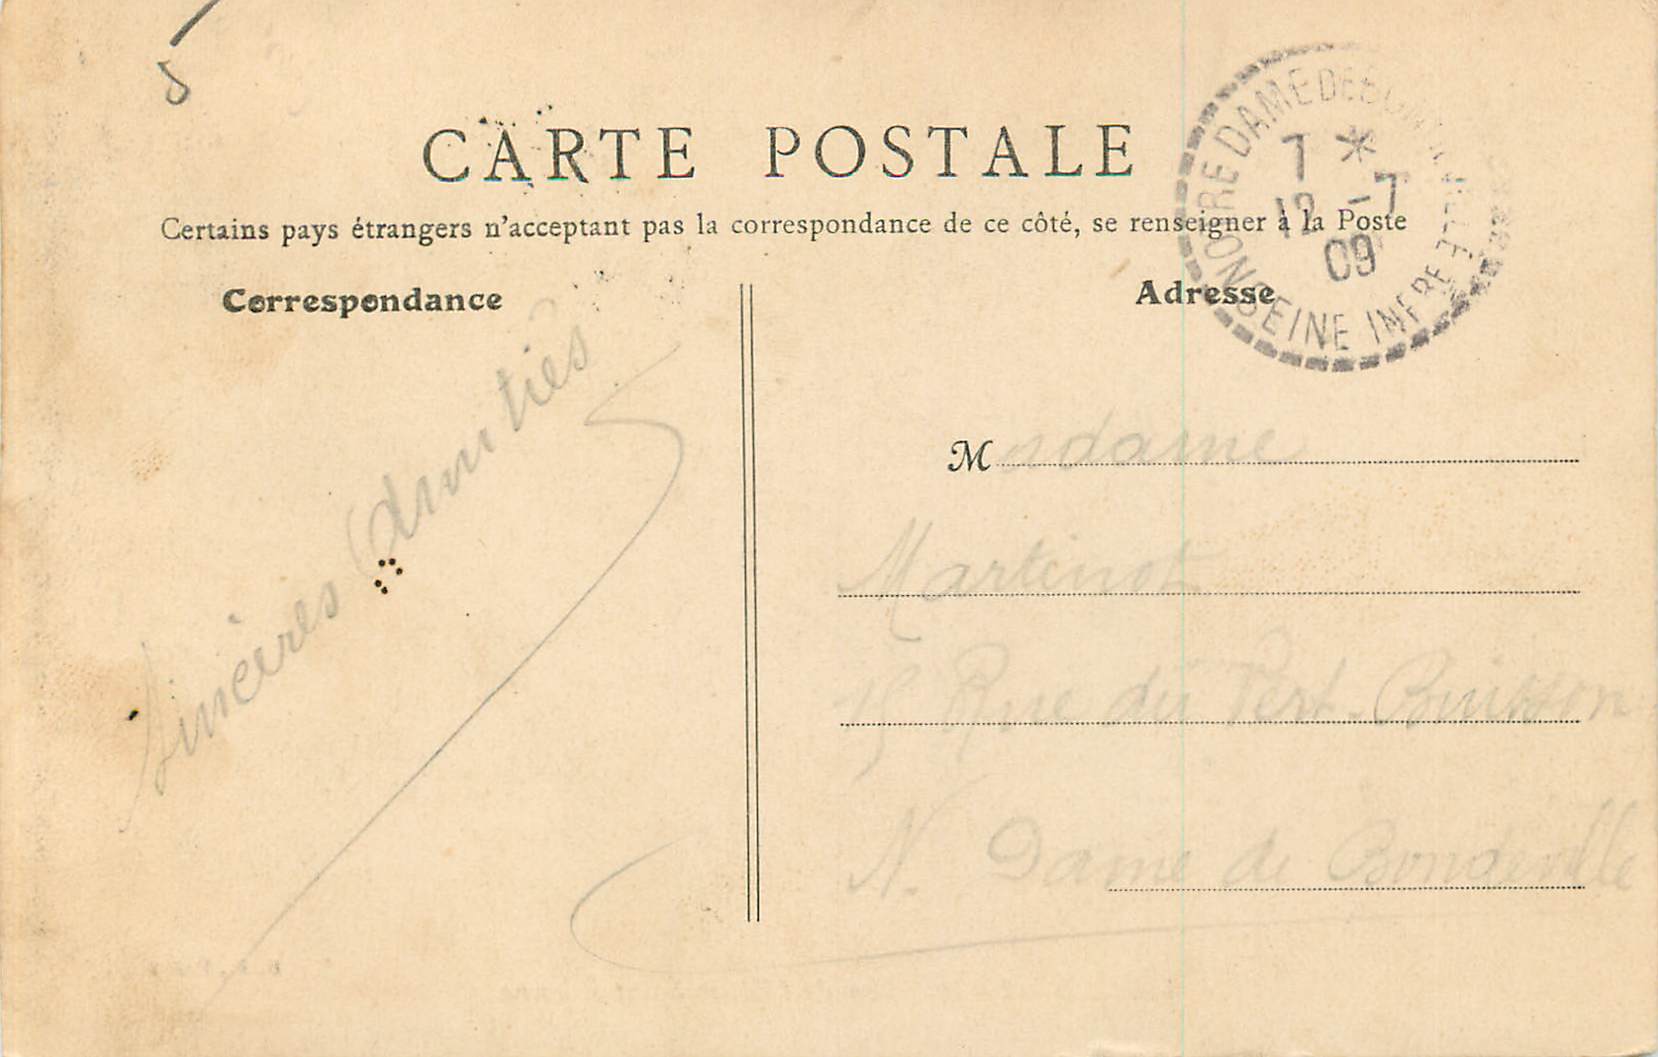 CARTE POSTALE
Certains pays étrangers n'acceptant pas la correspondance de ce côté, se renseigner à la Poste
Correspondance
Adresse
NOTRE DAME DE BONDEVILLE
SEINE INFRE
7 *
12 -7
09
Sincères amitiés
Madame
Martinot
15 Rue du Vert-Buisson
N. Dame de Bondeville